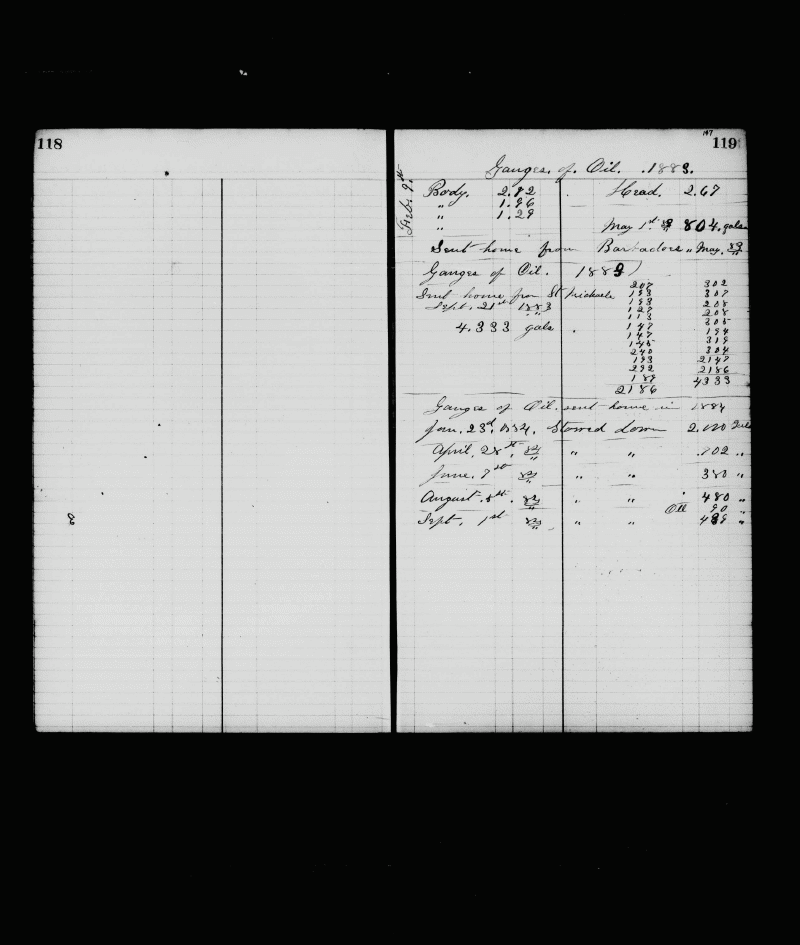 118
147
119
Gauges. of. Oil. .1883.
Febr. 9th
Body. 2.92 . Head. 2.67
" 1.96
" 1.29
" May 1st. 83 804. gals
Sent home from Barbadoes " May. 83
Gauges of Oil. 1883)
Sent home from St Michaels
Sept. 21st 1883
4.333 gals .
207 302
193 307
193 208
127 208
113 305
147 194
147 319
145 304
240 2147
193 2186
292 4333
189
2186
Gauges of Oil. sent home in 1884
Jan. 23d, 1884. Stowed down 2.020 Gals
April. 28th. 84 " " .702 "
June. 7th 84 " " 380 "
August. 5th. 84 " " 480 "
Oil 90 "
Sept. 1st 84 " " 489 "